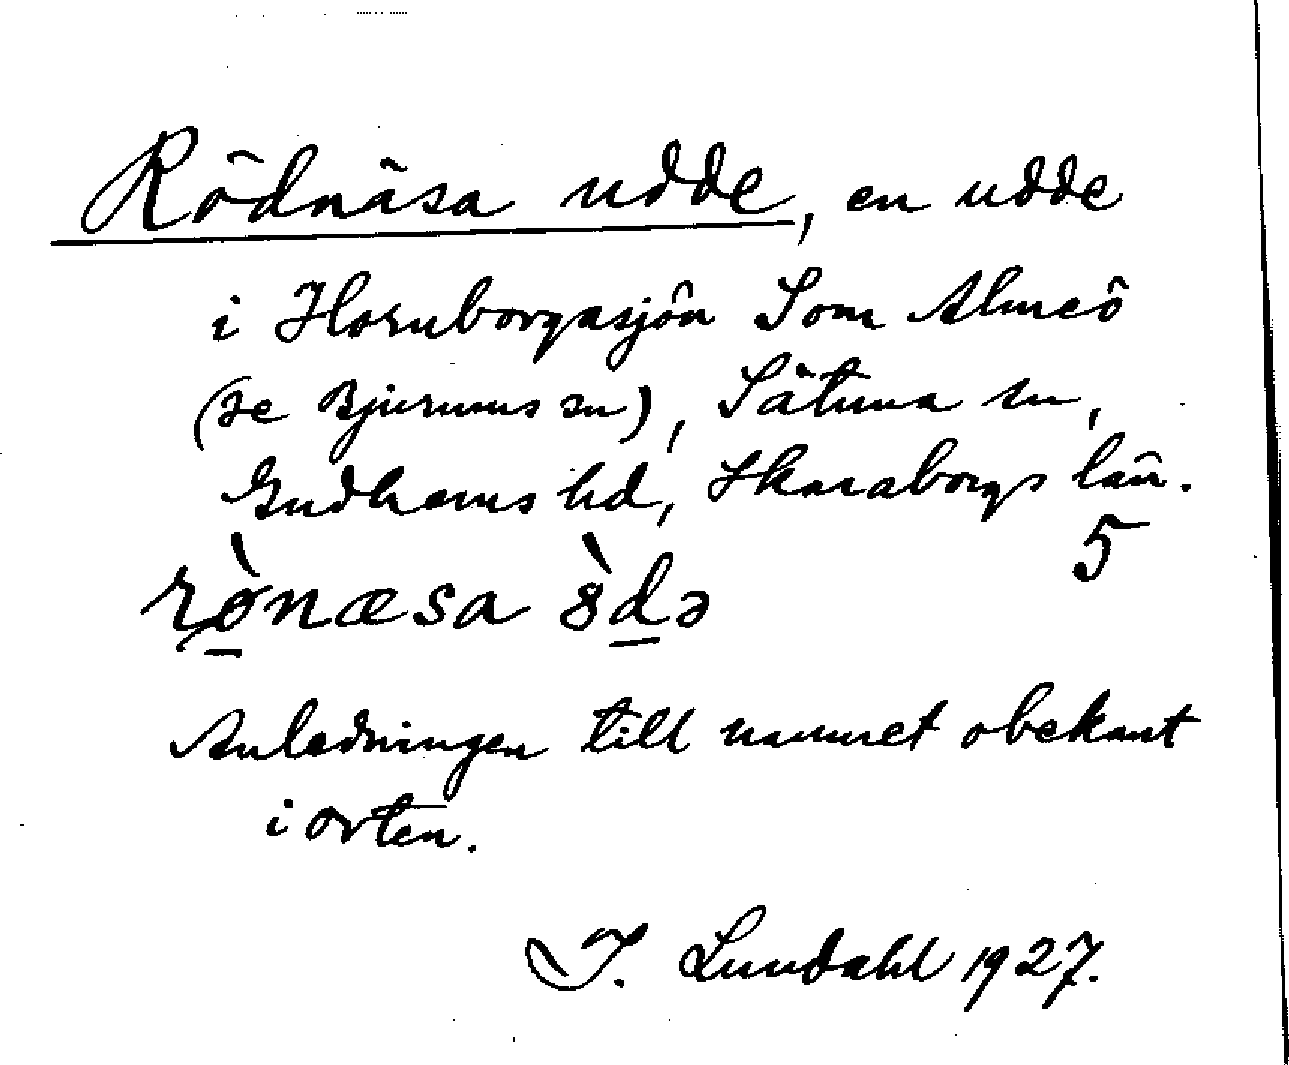 Rödnäsa udde, en udde
i Hornborgasjön Som Almeö
(se Bjurums sn), Sätuna sn,
Gudhems hd, Skaraborgs län.
5
rø̱̀næsa 8̀ḏə
Anledningen till namnet obekant
i orten.
I. Lundahl 1927.